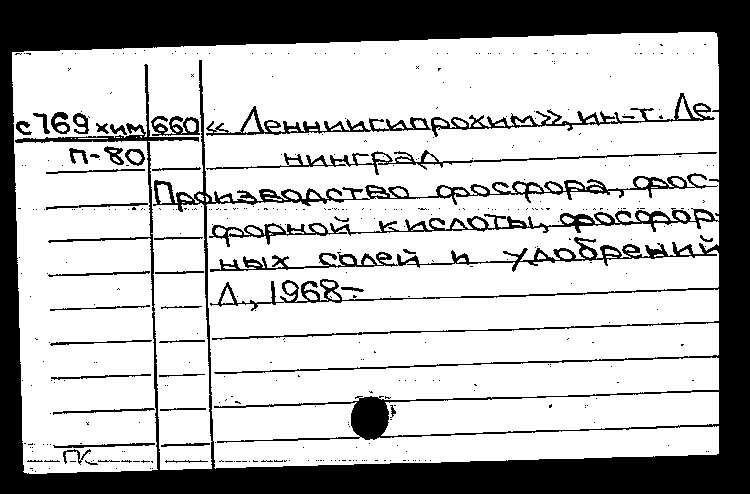 с769хим 660 «Ленниигипрохим», ин-т. Ле-
П-80 нинград.
Производство фосфора, фос-
форной кислоты, фосфор-
ных солей и удобрений
Л., 1968-
ГК